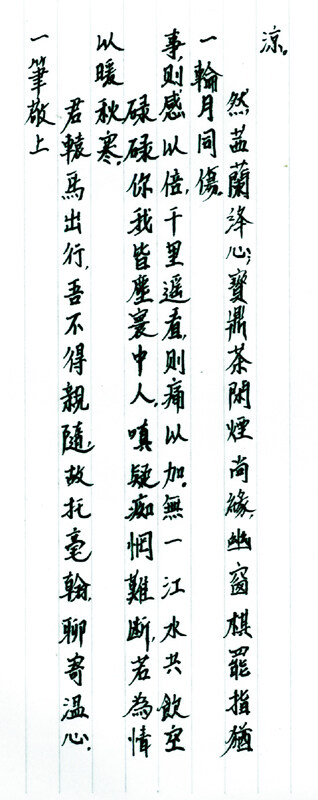 涼。
然茝蘭絳心;寶鼎茶閑煙尚緣,幽窗棋罷指猶
一輪月同傷。
事,則感以倍,千里遥看,則痛以加。無一江水共飲,空
碌碌你我皆塵寰中人,嗔疑痴惘難斷,若為情
以暖秋寒。
君轅馬出行,吾不得親隨,故托毫翰,聊寄溫心。
一筆敬上